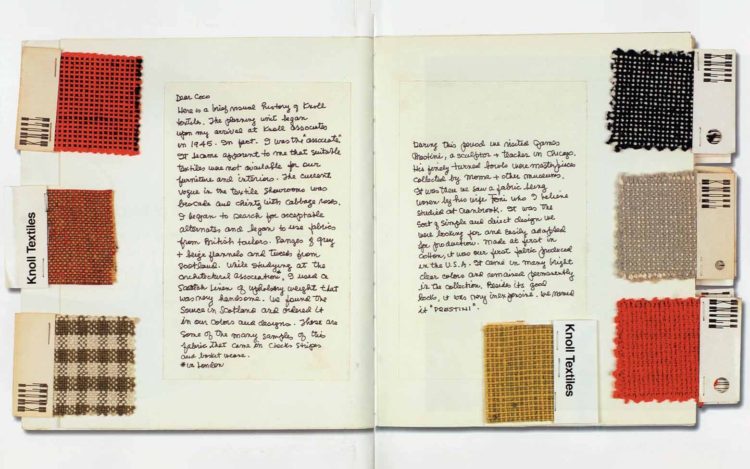 Dear Coco
Here is a brief visual history of Knoll
textiles. The planning unit began
upon my arrival at Knoll Associates
in 1945. In fact. I was the "associate".
It became apparent to me that suitable
textiles were not available for our
furniture and interiors. The current
vogue in the textile showrooms was
brocade and chintz with cabbage roses.
I began to search for acceptable
alternates and began to use fabrics
from British tailors. Ranges of grey
+ beige flannels and tweeds from
Scotland. While studying at the
architectural association*, I used a
Scottish linen of upholstery weight that
was very handsome. We found the
source in Scotland and ordered it
in our colors and designs. These are
some of the many samples of this
fabric that came in checks stripes
and basket weave.
* in London
Knoll Textiles
During this period we visited James
Prestini, a sculptor + teacher in Chicago.
His finely turned bowls were masterpieces
collected by Moma + other museums.
It was then we saw a fabric being
woven by his wife Toni who I believe
studied at Cranbrook. It was the
sort of simple and direct design we
were looking for and easily adapted
for production. Made at first in
cotton, it was our first fabric produced
in the U.S.A. It came in many bright
clear colors and remained permanently
in the collection. Besides its good
looks, it was very inexpensive. We named
it "PRESTINI".
Knoll Textiles